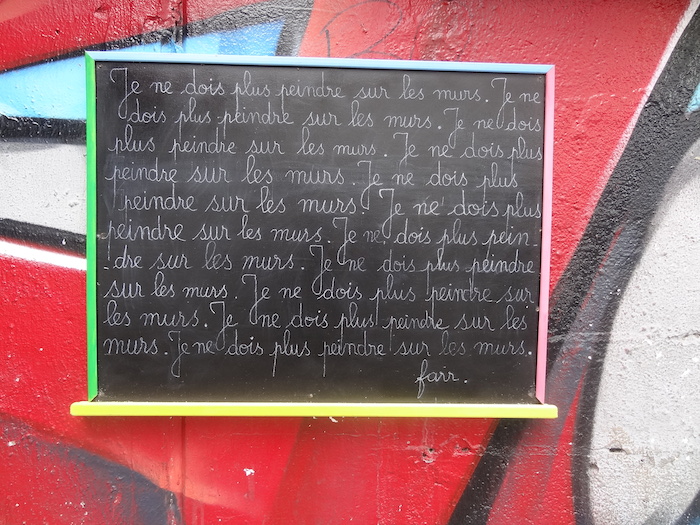 Je ne dois plus peindre sur les murs. Je ne
dois plus peindre sur les murs. Je ne dois
plus peindre sur les murs. Je ne dois plus
peindre sur les murs. Je ne dois plus
peindre sur les murs. Je ne dois plus
peindre sur les murs. Je ne dois plus pein-
dre sur les murs. Je ne dois plus peindre
sur les murs. Je ne dois plus peindre sur
les murs. Je ne dois plus peindre sur les
murs. Je ne dois plus peindre sur les murs.
farr.